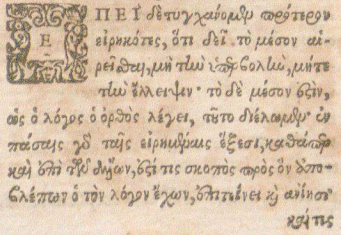 ΕΠΕΙ δὲ τυγχάνομεν πρότερον
εἰρηκότες, ὅτι δεῖ τὸ μέσον αἱ-
ρεῖσθαι, μὴ τὴν ὑπερβολὴν, μήτε
τὴν ἔλλειψιν· τὸ δὲ μέσον ἐστὶν,
ὡς ὁ λόγος ὁ ὀρθὸς λέγει, τοῦτο διέλωμεν· ἐν
πάσαις γὸ ταῖς εἰρημέναις ἕξεσι, καθάπερ
καὶ ἐπὶ τῶν ἄλλων, ἐστί τις σκοπὸς πρὸς ὃν ἀπο-
βλέπων ὁ τὸν λόγον ἔχων, ἐπιτείνει κỳ ἀνίησι·
καί τις